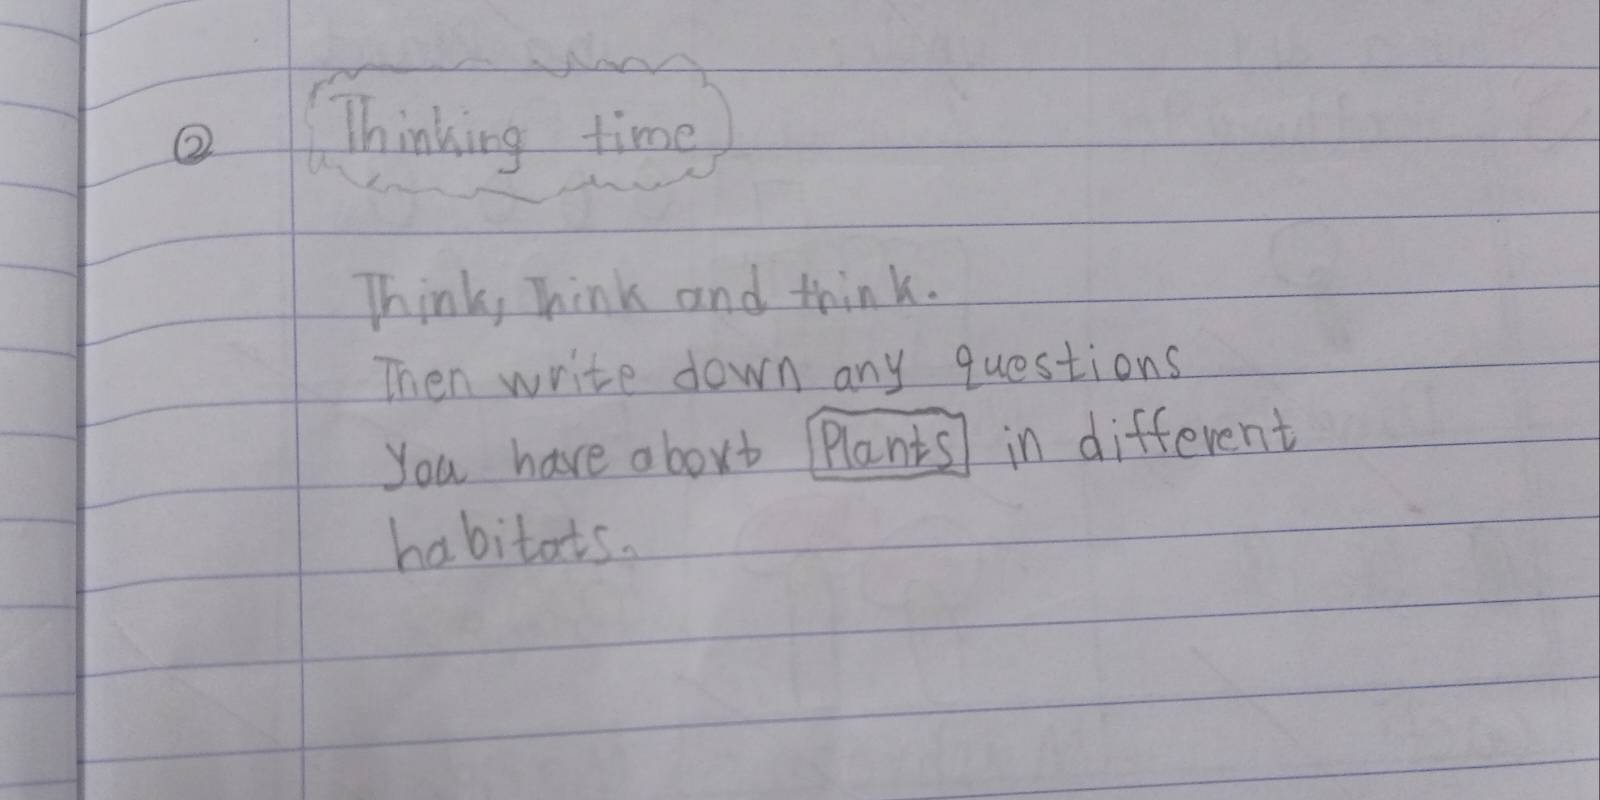 ② Thinking time
Think, Think and think.
Then write down any questions
You have about Plants in different
habitats.